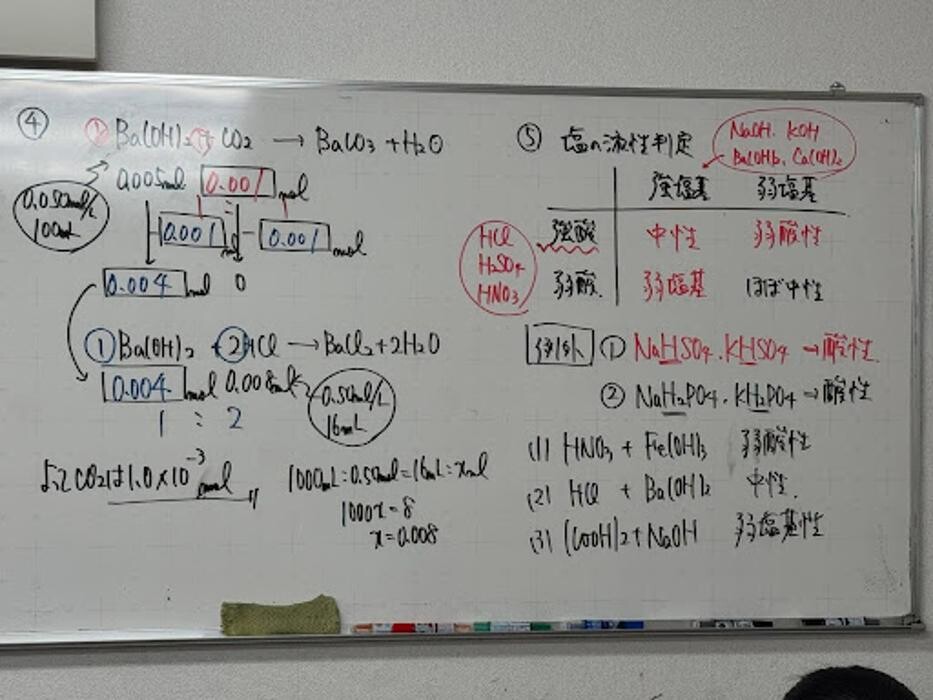 ④
① Ba(OH)2 + ① CO2 → BaCO3 + H2O
0.050mol/L
100mL
0.005mol 0.001 mol
0.001 mol 0.001 mol
0.004 mol 0
① Ba(OH)2 + ② HCl → BaCl2 + 2H2O
0.004 mol 0.008mol
0.50mol/L
16mL
1 : 2
よってCO2は1.0×10⁻³ mol
1000mL:0.50mol=16mL:xmol
1000x=8
x=0.008
⑤ 塩の液性判定
NaOH. KOH
Ba(OH)2, Ca(OH)2
強塩基 弱塩基
HCl
H2SO4
HNO3
強酸 中性 弱酸性
弱酸 弱塩基 ほぼ中性
例外 ① NaHSO4. KHSO4 → 酸性
② NaH2PO4. KH2PO4 → 酸性
(1) HNO3 + Fe(OH)3 弱酸性
(2) HCl + Ba(OH)2 中性.
(3) (COOH)2+NaOH 弱塩基性